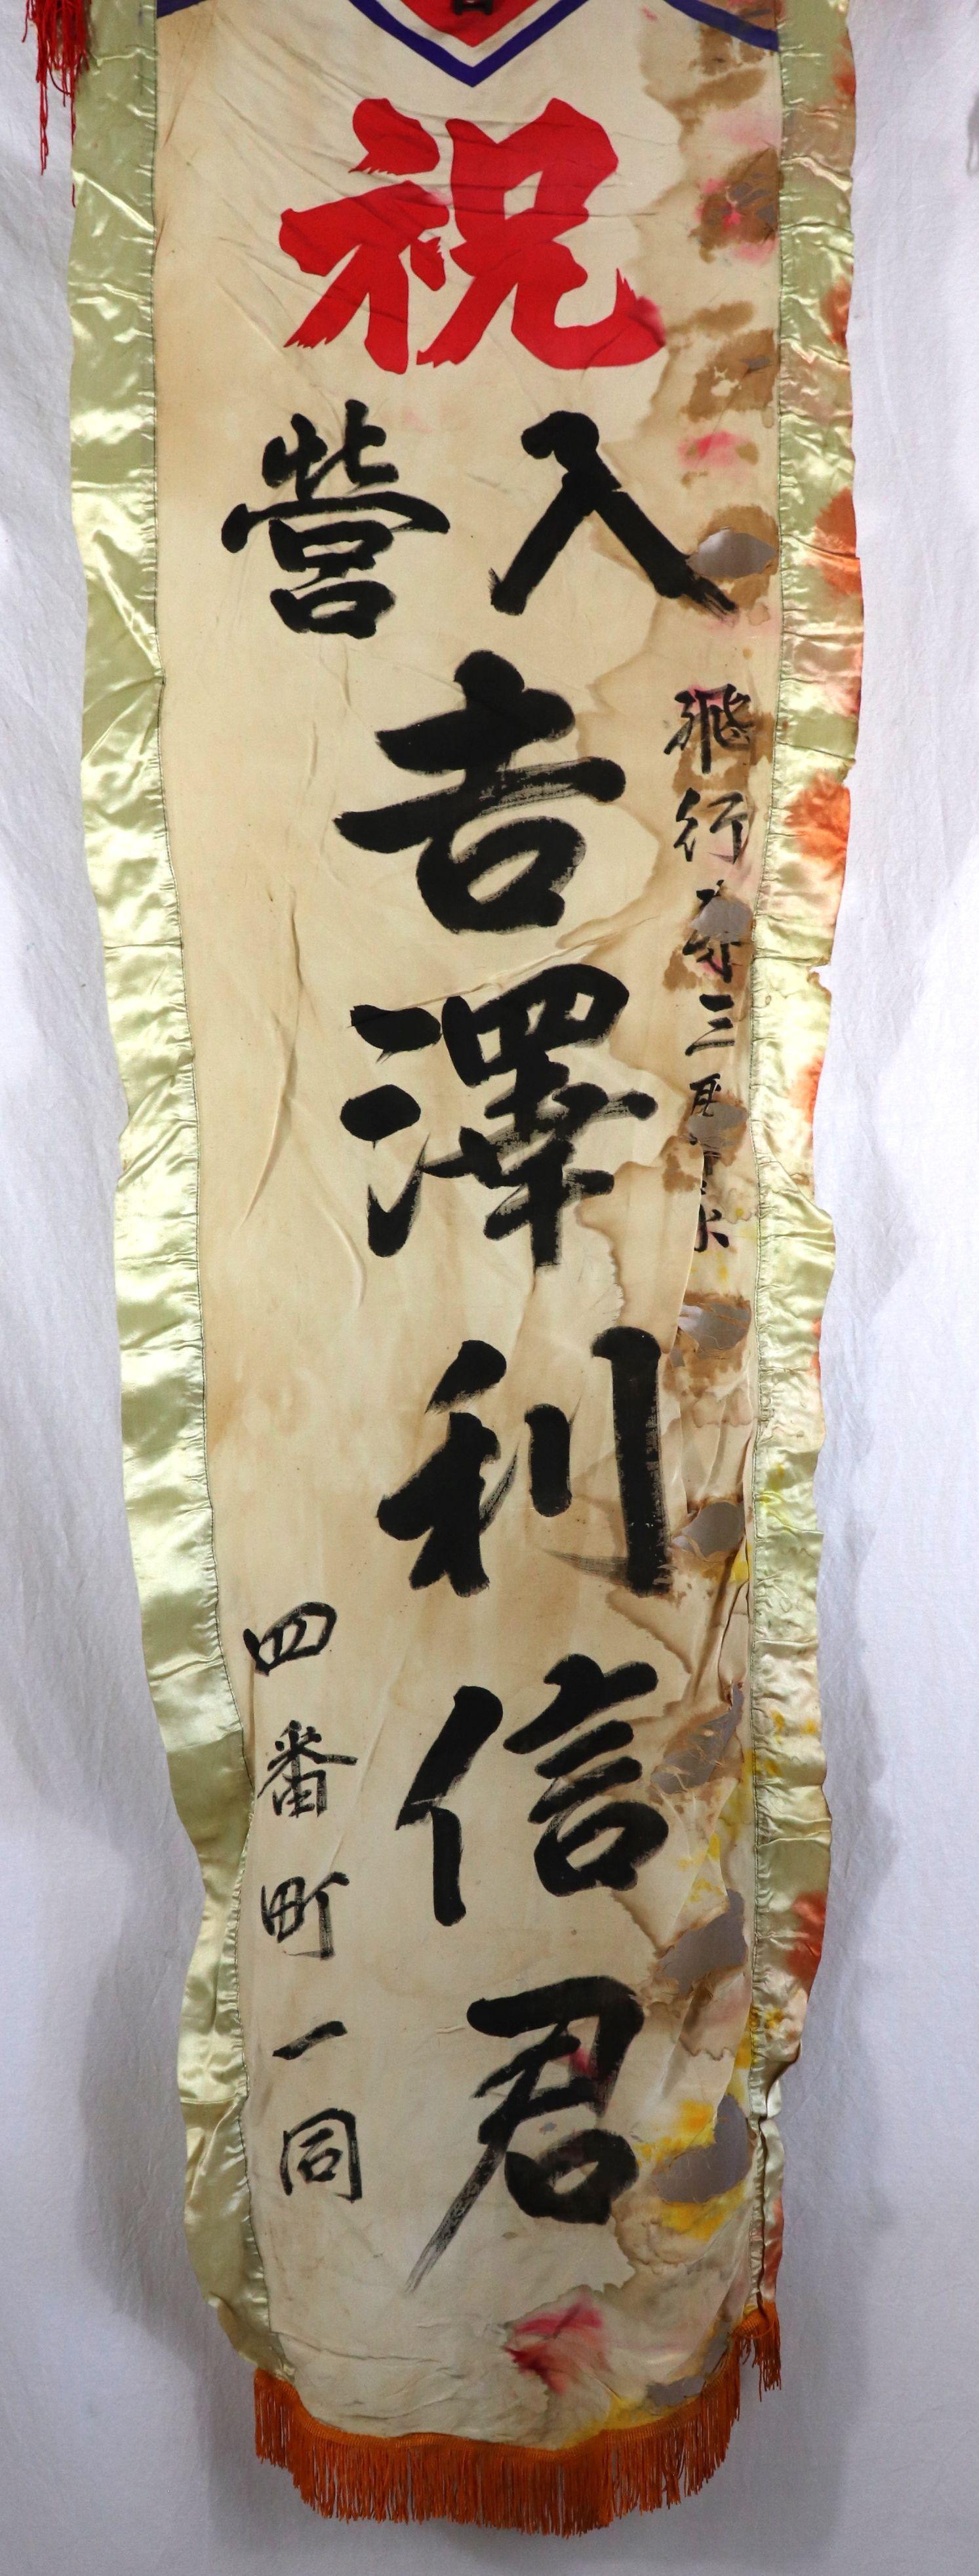 祝
入營
飛行 三
吉澤利信君
四番町一同